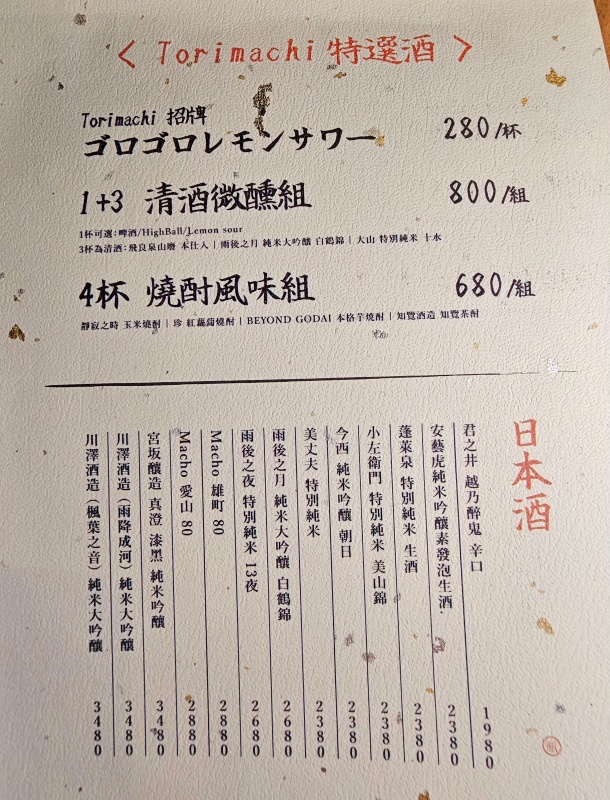 < Torimachi 特選酒 >
Torimachi 招牌
ゴロゴロレモンサワー 280/杯
1+3 清酒微醺組 800/組
1杯可選:啤酒/HighBall/Lemon sour
3杯為清酒:飛良泉山廢 本仕入 | 雨後之月 純米大吟釀 白鶴錦 | 大山 特別純米 十水
4杯 燒酎風味組 680/組
靜寂之時 玉米燒酎 | 珍 紅蘿蔔燒酎 | BEYOND GODAI 本格芋燒酎 | 知覽酒造 知覽茶酎
日本酒
君之井 越乃醉鬼 辛口 1980
安藝虎純米吟釀素發泡生酒. 2380
蓬萊泉 特別純米 生酒 2380
小左衛門 特別純米 美山錦 2380
今西 純米吟釀 朝日 2380
美丈夫 特別純米 2380
雨後之月 純米大吟釀 白鶴錦 2680
雨後之夜 特別純米 13夜 2680
Macho 雄町 80 2880
Macho 愛山 80 2880
宮坂釀造 真澄 漆黑 純米吟釀 3480
川澤酒造(雨降成河)純米大吟釀 3480
川澤酒造(楓葉之音)純米大吟釀 3480